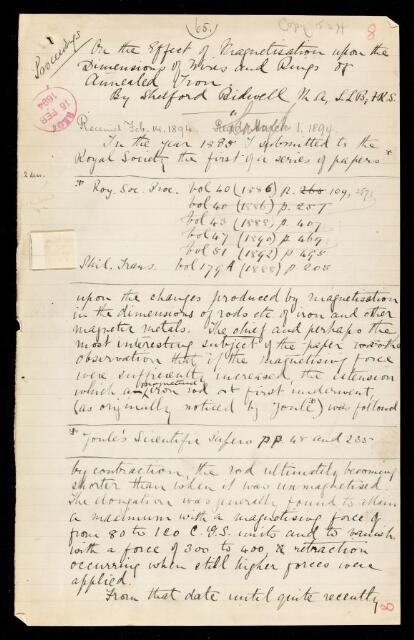 65.
Copy 8
Proceedings
On the Effect of Magnetisation upon the
Dimensions of Wires and Rings of
Annealed Iron.
By Shelford Bidwell, M.A., LL.B., F.R.S.
16 FEB 1894
Received Feb. 14. 1894. Read March 1. 1894.
In the year 1885 I submitted to the
Royal Society the first of a series of papers *
* Roy. Soc. Proc. vol 40 (1886) p. 109,
vol 40 (1886) p. 257
vol 43 (1888) p. 407
vol 47 (1890) p. 469
vol 51 (1892) p. 495
Phil. Trans. vol 179 A (1888) p. 205
upon the changes produced by magnetisation
in the dimensions of rods etc of iron and other
magnetic metals. The chief and perhaps the
most interesting subject of the paper was the
observation that if the magnetising force
were sufficiently increased, the extension
which an iron rod at first underwent,
(as originally noticed by Joule *) was followed
* Joule's Scientific Papers pp. 48 and 235
by contraction, the rod ultimately becoming
shorter than when it was unmagnetised.
The elongation was generally found to attain
a maximum with a magnetising force of
from 80 to 120 C.G.S. units and to vanish
with a force of 300 to 400, retraction
occurring when still higher forces were
applied.
From that date until quite recently
8